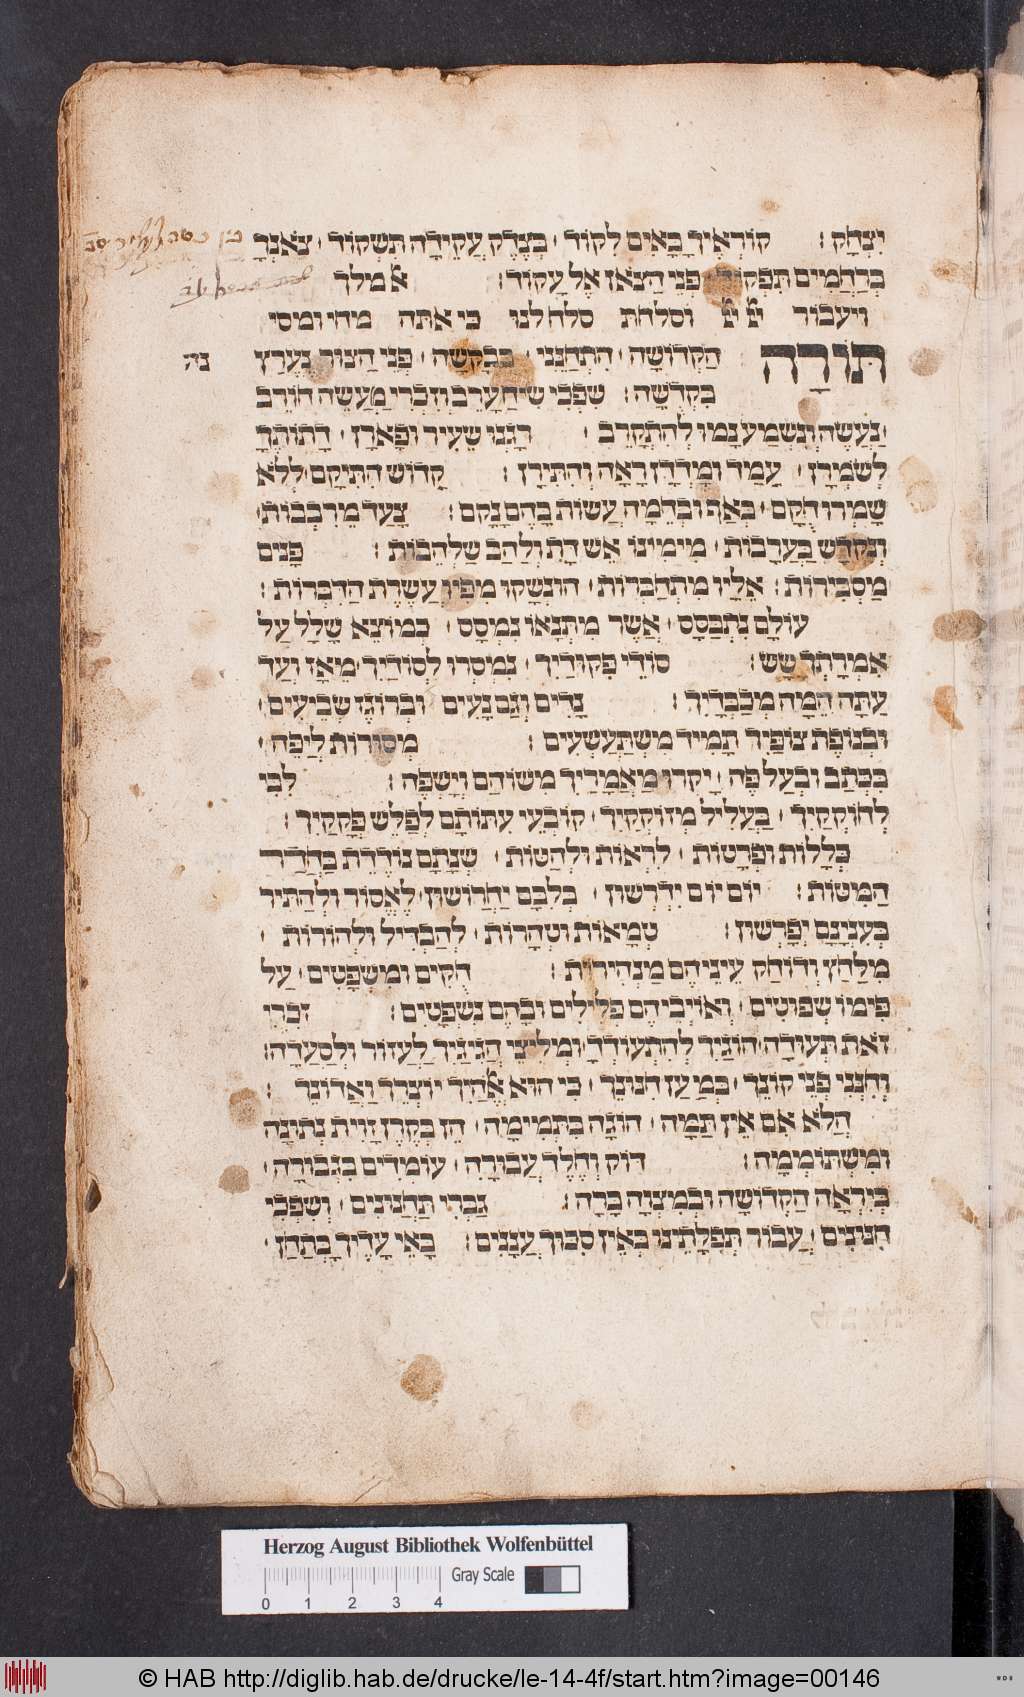 יִצְחָק: קוֹרְאֶיךָ בָּאִים לִקּוֹד · בְּצֶדֶק עֲקֵידָה תִּשְׁקוֹד · צֹאנְךָ
בְּרַחֲמִים תִּפְקוֹד · פְּנֵי הַצֹּאן אֶל עָקוֹד: א מלך
ויעבור יי יי וסלחת סלח לנו כי אתה מחי ומסי
תּוֹרָה הַקְּדוֹשָׁה · הִתְחַנְּנִי · בְּבַקָּשָׁה · פְּנֵי הַצּוּר נֶעֱרַץ נה
בִּקְדֻשָּׁה: שִׁפְכִי שִׂיחַ עָרֵב וְזִכְרֵי מַעֲשֵׂה חוֹרֵב
נַעֲשֶׂה וְנִשְׁמַע נָמוּ לְהִתְקָרֵב: רָגְנוּ שֵׂעִיר וּפָארָן · דָּתוֹתֶיךָ
לְשָׁמְרָן · עָמַד וּמְדָדָן רָאָה וְהִתִּירָן: קָדוֹשׁ הִתְיַקֵּם לְלֹא
שָׁמְרוּ חֻקָּם · בְּאַף וּבְחֵמָה עֲשׂוֹת בָּהֶם נָקָם: צָעַד מֵרִבְבוֹת ·
וְנִקְדַּשׁ בַּעֲרָבוֹת · מִימִינוֹ אֵשׁ דָּת וְלַהַב שַׁלְהֵבוֹת: פָּנִים
מַסְבִּירוֹת: אֵלָיו מִתְחַבְּרוֹת · הוּנְשָׁקוּ מִפִּיו עֲשֶׂרֶת הַדִּבְּרוֹת:
עוֹלָם נִתְבַּסֵּס · אֲשֶׁר מִתְּנָאוֹ נִמְסָס · כְּמוֹצֵא שָׁלָל עַל
אִמְרָתְךָ שָׂשׂ: סוֹדֵי פִּקּוּדֶיךָ · נִמְסְרוּ לְסוֹדֶיךָ · מֵאָז וְעַד
עַתָּה הֵמָּה מְכַבְּדֶיךָ: נָדִים וְגַם נָעִים וּבְרוֹגֶז שְׂבִיעִים ·
וּבְנוֹפֶת צוּפֶיךָ תָּמִיד מִשְׁתַּעְשְׁעִים: מְסוּרוֹת לְיַפֶּה ·
בִּכְתָב וּבְעַל פֶּה · יָקְרוּ מַאֲמָרֶיךָ מִשּׁוֹהַם וְיָשְׁפֶה: לִבִּי
לְחוֹקְקֶיךָ · בַּעֲלִיל מְזוּקָּקֶיךָ · קוֹבְעֵי עִתּוֹתָם לְפַלֵּשׁ פְּקָקֶיךָ:
כְּלָלוֹת וּפְרָטוֹת · לִרְאוֹת וּלְהַטּוֹת · שְׁנָתָם נוֹדֶדֶת בַּחֲדַר
הַמִּטּוֹת: יוֹם יוֹם יִדְרְשׁוּן · בְּלִבָּם יַחֲרוֹשׁוּן · לֶאֱסוֹר וּלְהַתִּיר
בְּעִנְיָנָם יְפָרְשׁוּן: טְמֵאוֹת וּטְהָרוֹת · לְהַבְדִּיל וּלְהוֹרוֹת ·
מִלַּחַץ וְדוֹחַק עֵינֵיהֶם מַנְהִירוֹת: חֻקִּים וּמִשְׁפָּטִים · עַל
פִּימוֹ שְׁפוּטִים · וְאוֹיְבֵיהֶם פְּלִילִים וּבָהֶם נִשְׁפָּטִים: זִכְרִי
זֹאת תְּעוּדָה · הוֹגַיִךְ לְהִתְעוֹדְדָה · וּמְלִיצֵי הֲגִיגַיִךְ לַעֲזוֹר וּלְסַעֲדָה:
וְחַנְּנִי פְּנֵי קוֹנֵךְ · בְּמַעַן חִנּוּנֵךְ · כִּי הוּא אֱלֹהַיִךְ יוֹצְרֵךְ וַאֲדוֹנֵךְ:
הֲלֹא אִם אֵין תַּמָּה · הוֹגָה בִּתְמִימָה · הֵן בְּקֶרֶן זָוִית נְתוּנָה
וּמִשְׁתּוֹמֵמָה: דּוֹק וְחֶלֶד עֲבוּרָהּ · עוֹמְדִים בִּגְבוּרָה ·
בְּיִרְאָה הַקְּדוֹשָׁה וּבְמִצְוָה בָּרָה: גַּבְּרִי תַּחֲנוּנִים · וְשִׁפְכִי
חִנּוּנִים · עֲבוֹר תְּפִלָּתֵינוּ בְּאֵין סִכּוּךְ עֲנָנִים: בָּאֵי עָדֶיךָ בְתַחַן ·
Herzog August Bibliothek Wolfenbüttel
Gray Scale
0 1 2 3 4
© HAB http://diglib.hab.de/drucke/le-14-4f/start.htm?image=00146